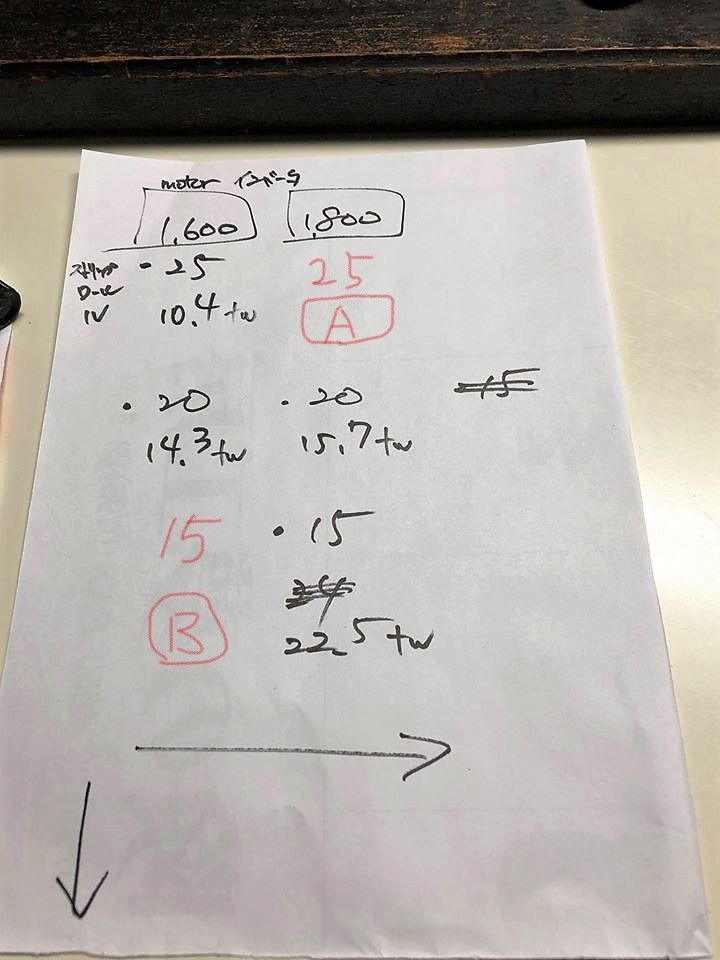 motor インバータ
1,600 1,800
ストリップ ・25 25
ロール
IV 10.4 tw A
・20 ・20
14.3 tw 15.7 tw
15 ・15
B
22.5 tw